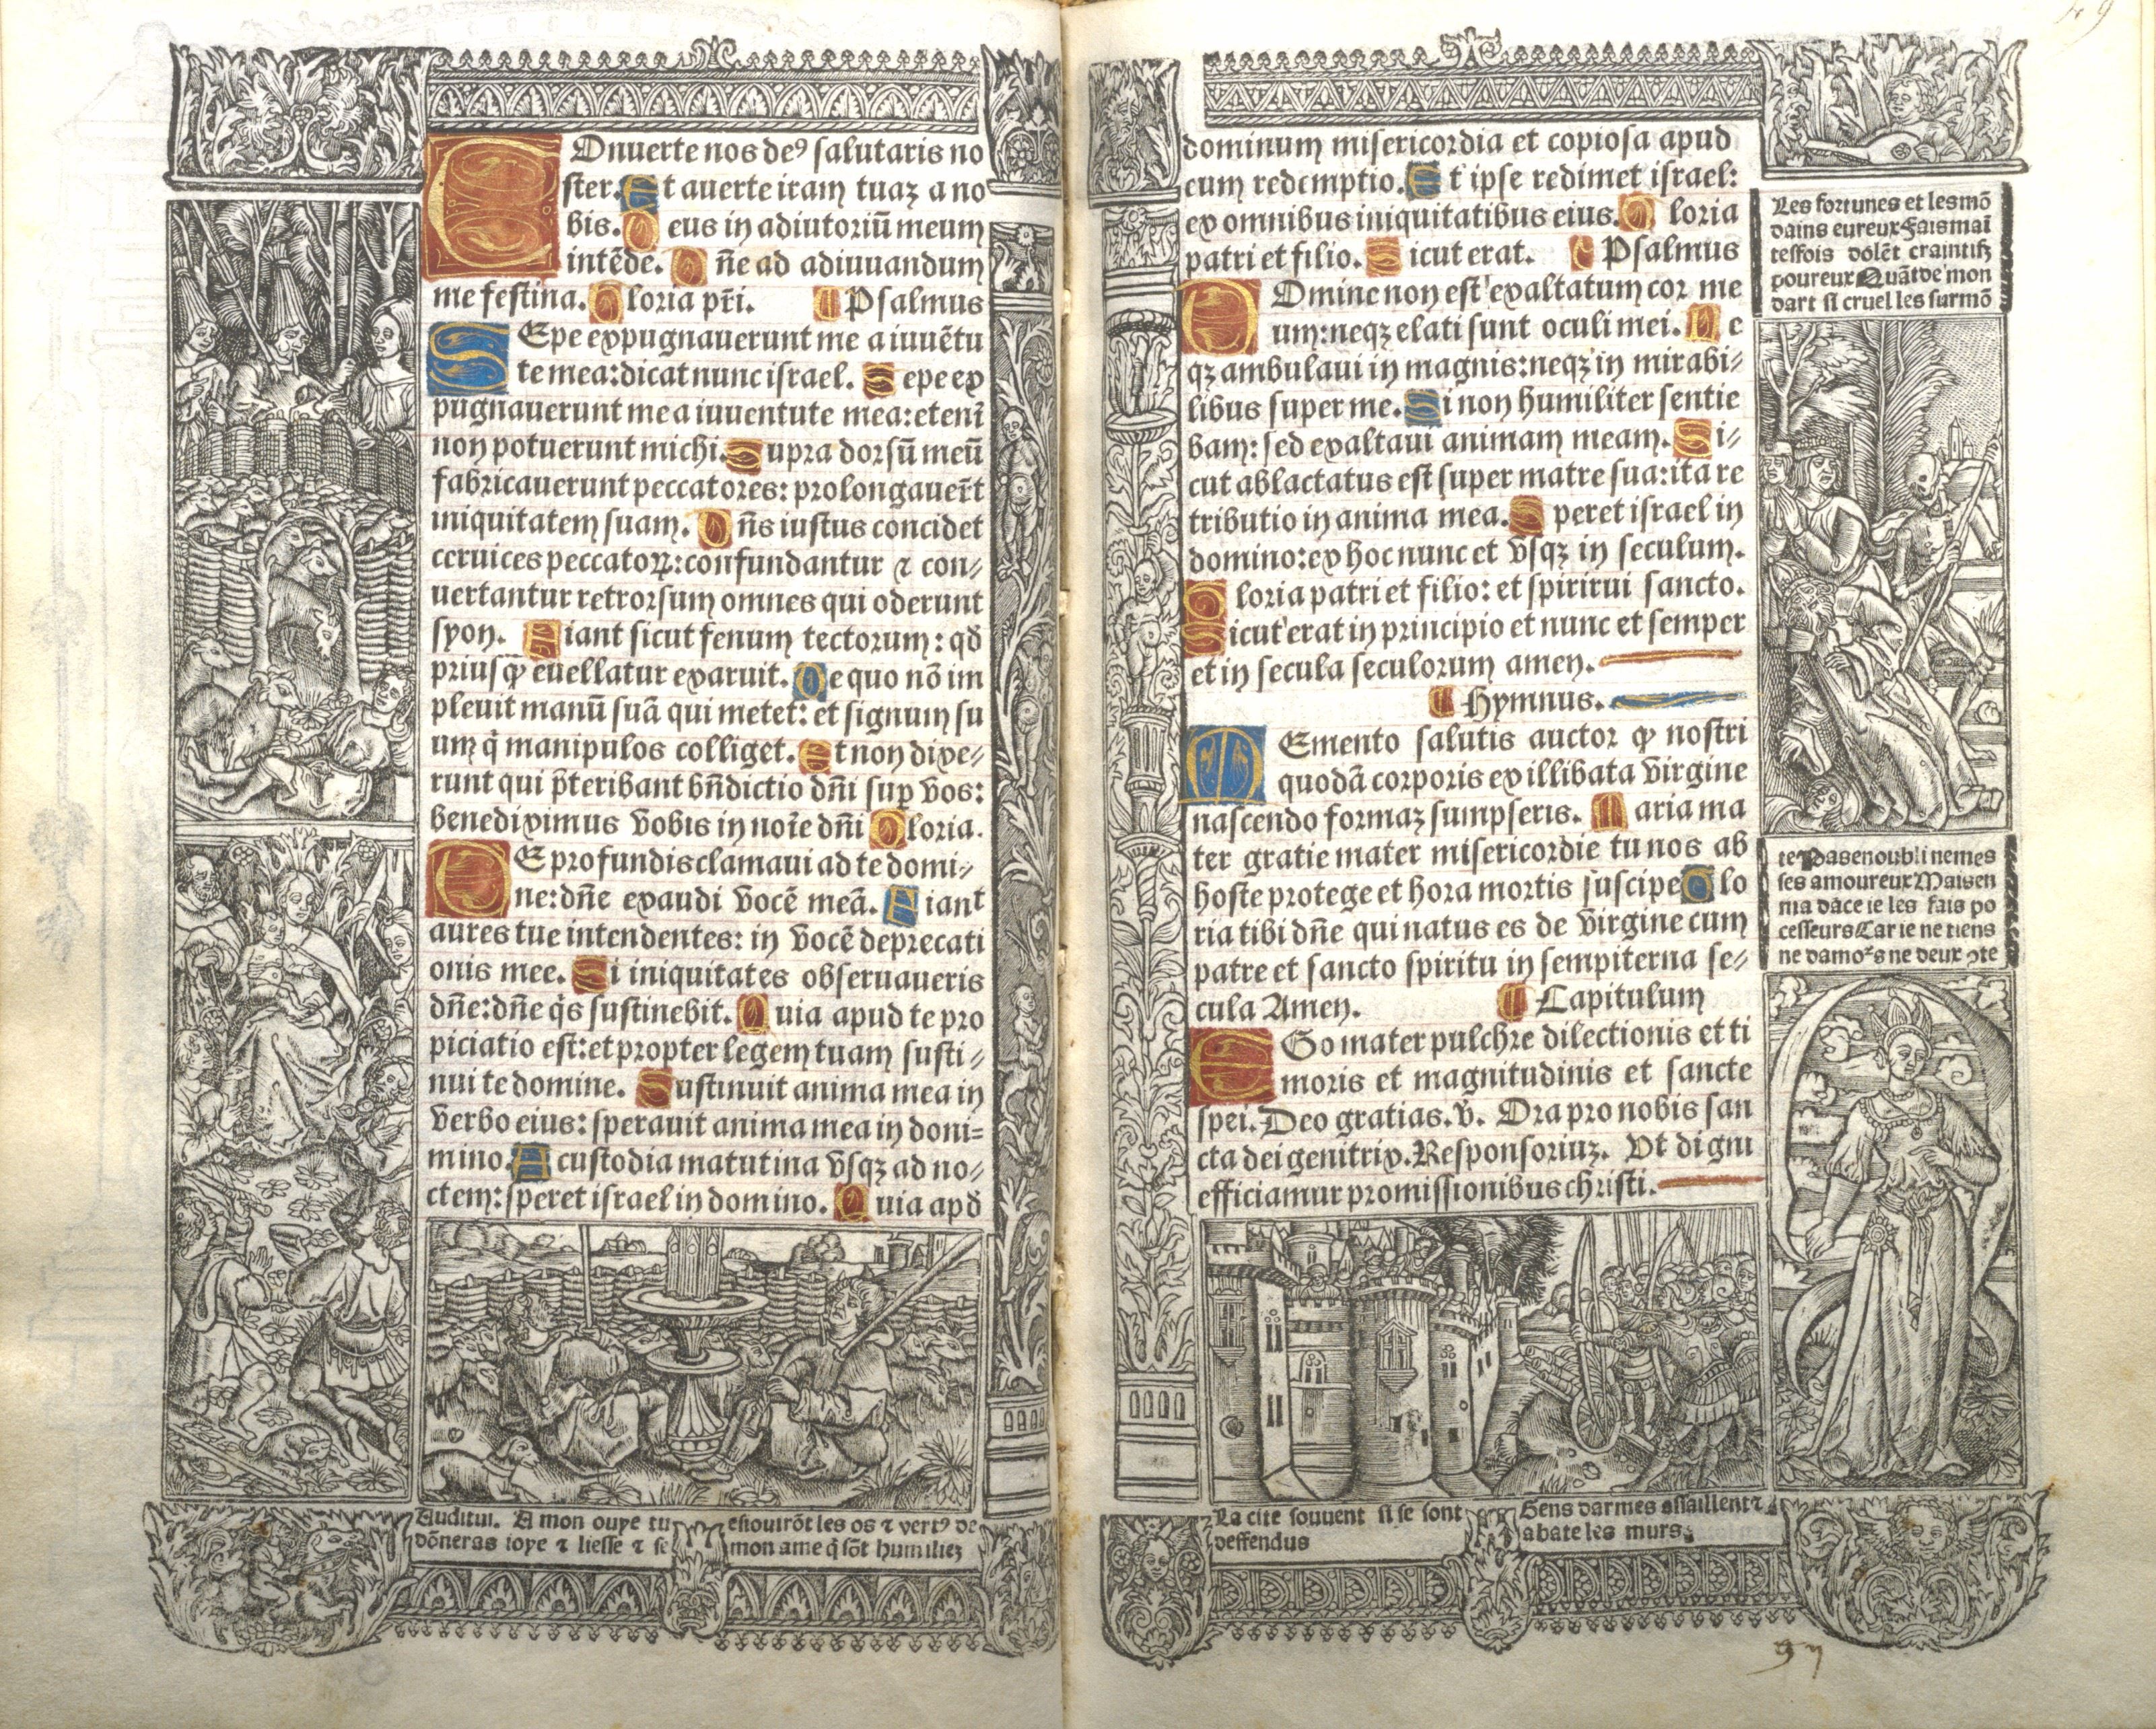 COnuerte nos deꝰ salutaris no
ster. Et auerte iram tuaz a no
bis. Deus in adiutoriū meum
intēde. Dn̄e ad adiuuandum
me festina. Gloria pr̄i. ¶ Psalmus
SEpe expugnauerunt me a iuuētu
te mea: dicat nunc israel. Sepe ex
pugnauerunt me a iuuentute mea: etenī
non potuerunt michi. Supra dorsū meū
fabricauerunt peccatores: prolongauer̄t
iniquitatem suam. Dn̄s iustus concidet
ceruices peccatoꝝ: confundantur ⁊ con⸗
uertantur retrorsum omnes qui oderunt
syon. Fiant sicut fenum tectorum: qđ
priusꝙ̄ euellatur exaruit. De quo nō im
pleuit manū suā qui metet: et signum su
um q̇ manipulos colliget. Et non dixe⸗
runt qui p̄teribant bn̄dictio dn̄i suꝑ vos:
benediximus vobis in noīe dn̄i Gloria.
DE profundis clamaui ad te domi⸗
ne: dn̄e exaudi vocē meā. Fiant
aures tue intendentes: in vocē deprecati
onis mee. Si iniquitates obseruaueris
dn̄e: dn̄e q̇s sustinebit. Quia apud te pro
piciatio est: et propter legem tuam susti⸗
nui te domine. Sustinuit anima mea in
verbo eius: sperauit anima mea in doni⸗
mino. A custodia matutina vsqꝫ ad no⸗
ctem: speret israel in domino. Quia apđ
Auditui. A mon ouye tu
dōneras ioye ⁊ liesse ⁊ se
esiouirōt les os ⁊ vertꝰ de
mon ame q̇ sōt humiliez
49
dominum misericordia et copiosa apud
eum redemptio. Et ipse redimet israel:
ex omnibus iniquitatibus eius. Gloria
patri et filio. Sicut erat. ¶ Psalmus
DOmine non est exaltatum cor me
um: neqꝫ elati sunt oculi mei. Ne
qꝫ ambulaui in magnis: neqꝫ in mirabi⸗
libus super me. Si non humiliter sentie
bam: sed exaltaui animam meam. Si⸗
cut ablactatus est super matre sua: ita re
tributio in anima mea. Speret israel in
domino: ex hoc nunc et vsqꝫ in seculum.
Gloria patri et filio: et spirirui sancto.
Sicut erat in principio et nunc et semper
et in secula seculorum amen.
¶ Hymnus.
MEmento salutis auctor ꝙ nostri
quodā corporis ex illibata virgine
nascendo formaz sumpseris. Maria ma
ter gratie mater misericordie tu nos ab
hoste protege et hora mortis suscipe Glo
ria tibi dn̄e qui natus es de virgine cum
patre et sancto spiritu in sempiterna se⸗
cula Amen. ¶ Capitulum
EGo mater pulchre dilectionis et ti
moris et magnitudinis et sancte
spei. Deo gratias. v̇. Ora pro nobis san
cta dei genitrix. Responsoriuz. Ut digni
efficiamur promissionibus christi.
Les fortunes et les mō
dains eureux Fais maī
tesfois dolēt craintifz
poureux Quāt de mon
dart si cruel les surmō
te Pas en oubli ne mes
ses amoureux Mais en
ma dāce ie les fais po
cesseurs Car ie ne tiens
ne damoᷣs ne deux ꝯte
La cite souuent si se sont
deffendus
Gens darmes assaillent ⁊
abate les murs